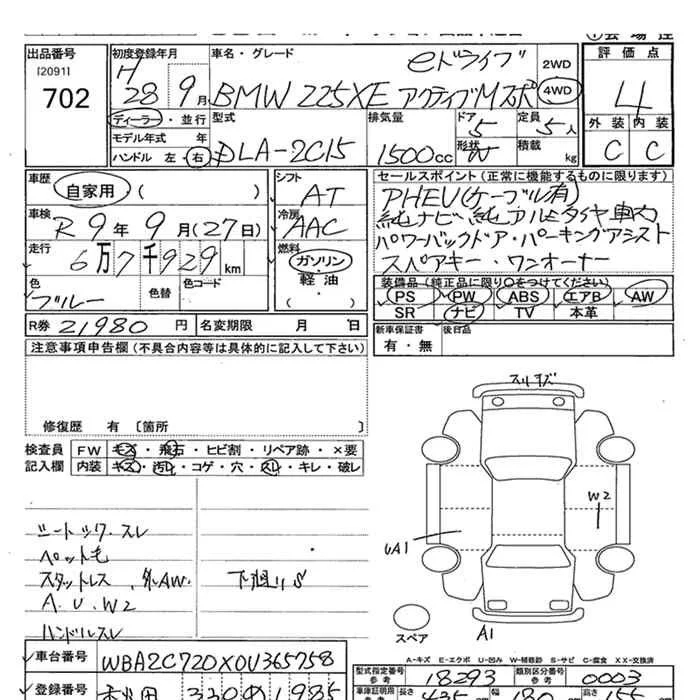 出品番号 初度登録年月 車名・グレード eドライブ 2WD 評価点
[2091] H 28年 9月 BMW 225XE アクティブMスポ 4WD 4
702 ディーラー・並行 型式 排気量 ドア 5 定員 5人 外装 内装
モデル年式 年 DLA-2C15 1500cc 形状 W 積載 kg C C
ハンドル 左・右
車歴 自家用 ( ) シフト AT セールスポイント(正常に機能するものに限ります)
車検 R9年9月(27日) 冷房 AAC PHEV(ケーブル有)
純ナビ 純アルミタイヤ車内
走行 6万7千929km 燃料 ガソリン・軽油 ( ) パワーバックドア・パーキングアシスト
スペアキー・ワンオーナー
色 ブルー 色替 色コード 装備品(純正品に限り○をつけてください)
PS PW ABS エアB AW
R券 21980円 名変期限 月 日 SR ナビ TV 本革
注意事項申告欄(不具合内容等は具体的に記入して下さい) 新車保証書 後日品
有・無
修復歴 有 〔箇所 〕
検査員 FW キズ・飛石・ヒビ割・リペア跡・×要
記入欄 内装 キズ・汚レ・コゲ・穴・スレ・キレ・破レ
スリキズ
シートシワ・スレ W2
ペット毛 UA1
スタットレス、外AW. 下廻りS
A.U.W2
ハンドルスレ スペア A1
車台番号 WBA2C720X0V365758 A-キズ E-エクボ U-凹み W-補修跡 S-サビ C-腐食 XX-交換済
型式指定番号 参考 18293 類別区分番号 参考 0003
登録番号 330 1985 車庫証明用 参考 長さ 435 幅 180 高さ 155